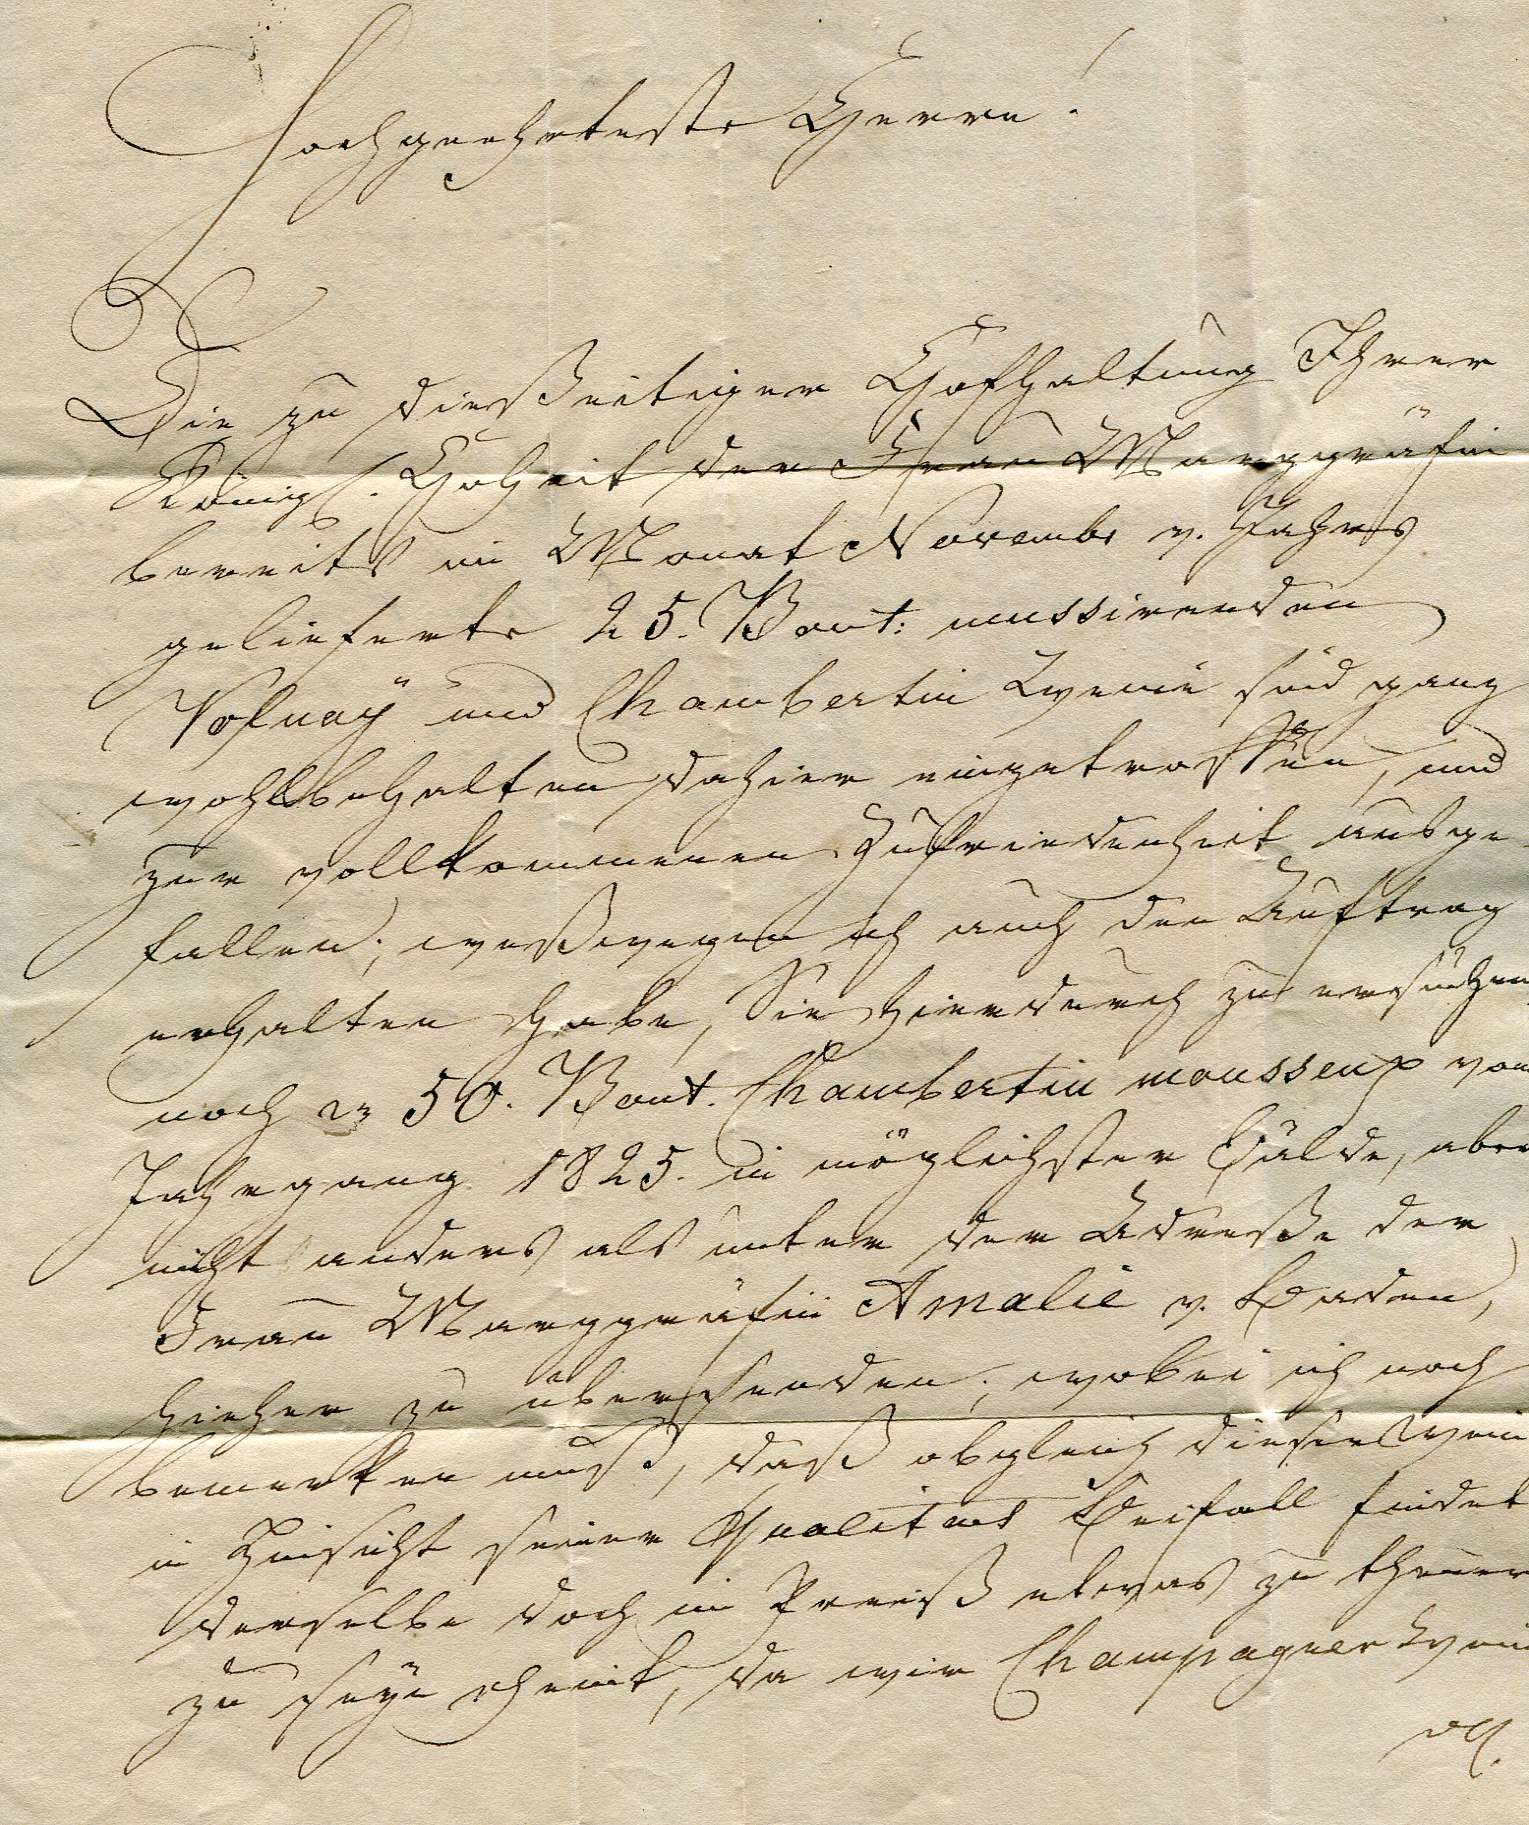 Hochgeehrteste Herrn!
Die zu dießeitiger Hofhaltung Ihrer
Königl. Hoheit der Frau Marggräfin
bereits im Monat Novembr v. Jahrs
gelieferte 25. Bout: mussirenden
Volnaÿ und Chambertin Weine sind ganz
wohlbehalten dahier eingetroffen, und
zur vollkommenen Zufriedenheit ausge-
fallen; weßwegen ich auch den Auftrag
erhalten habe, Sie hierdurch zu ersuchen,
noch 50. Bout. Chambertin mousseux vom
Jahrgang 1825. in möglichster Bälde, aber
nicht anders als unter der Adreße der
Frau Marggräfin Amalie v. Baden,
hieher zu übersenden; wobei ich noch
bemerken muß, daß obgleich dieser Wein
in Hinsicht seiner Qualitaet Beifall findet
derselbe doch im Preiß etwas zu theuer
zu seÿn scheint, da wir Champagner Wein